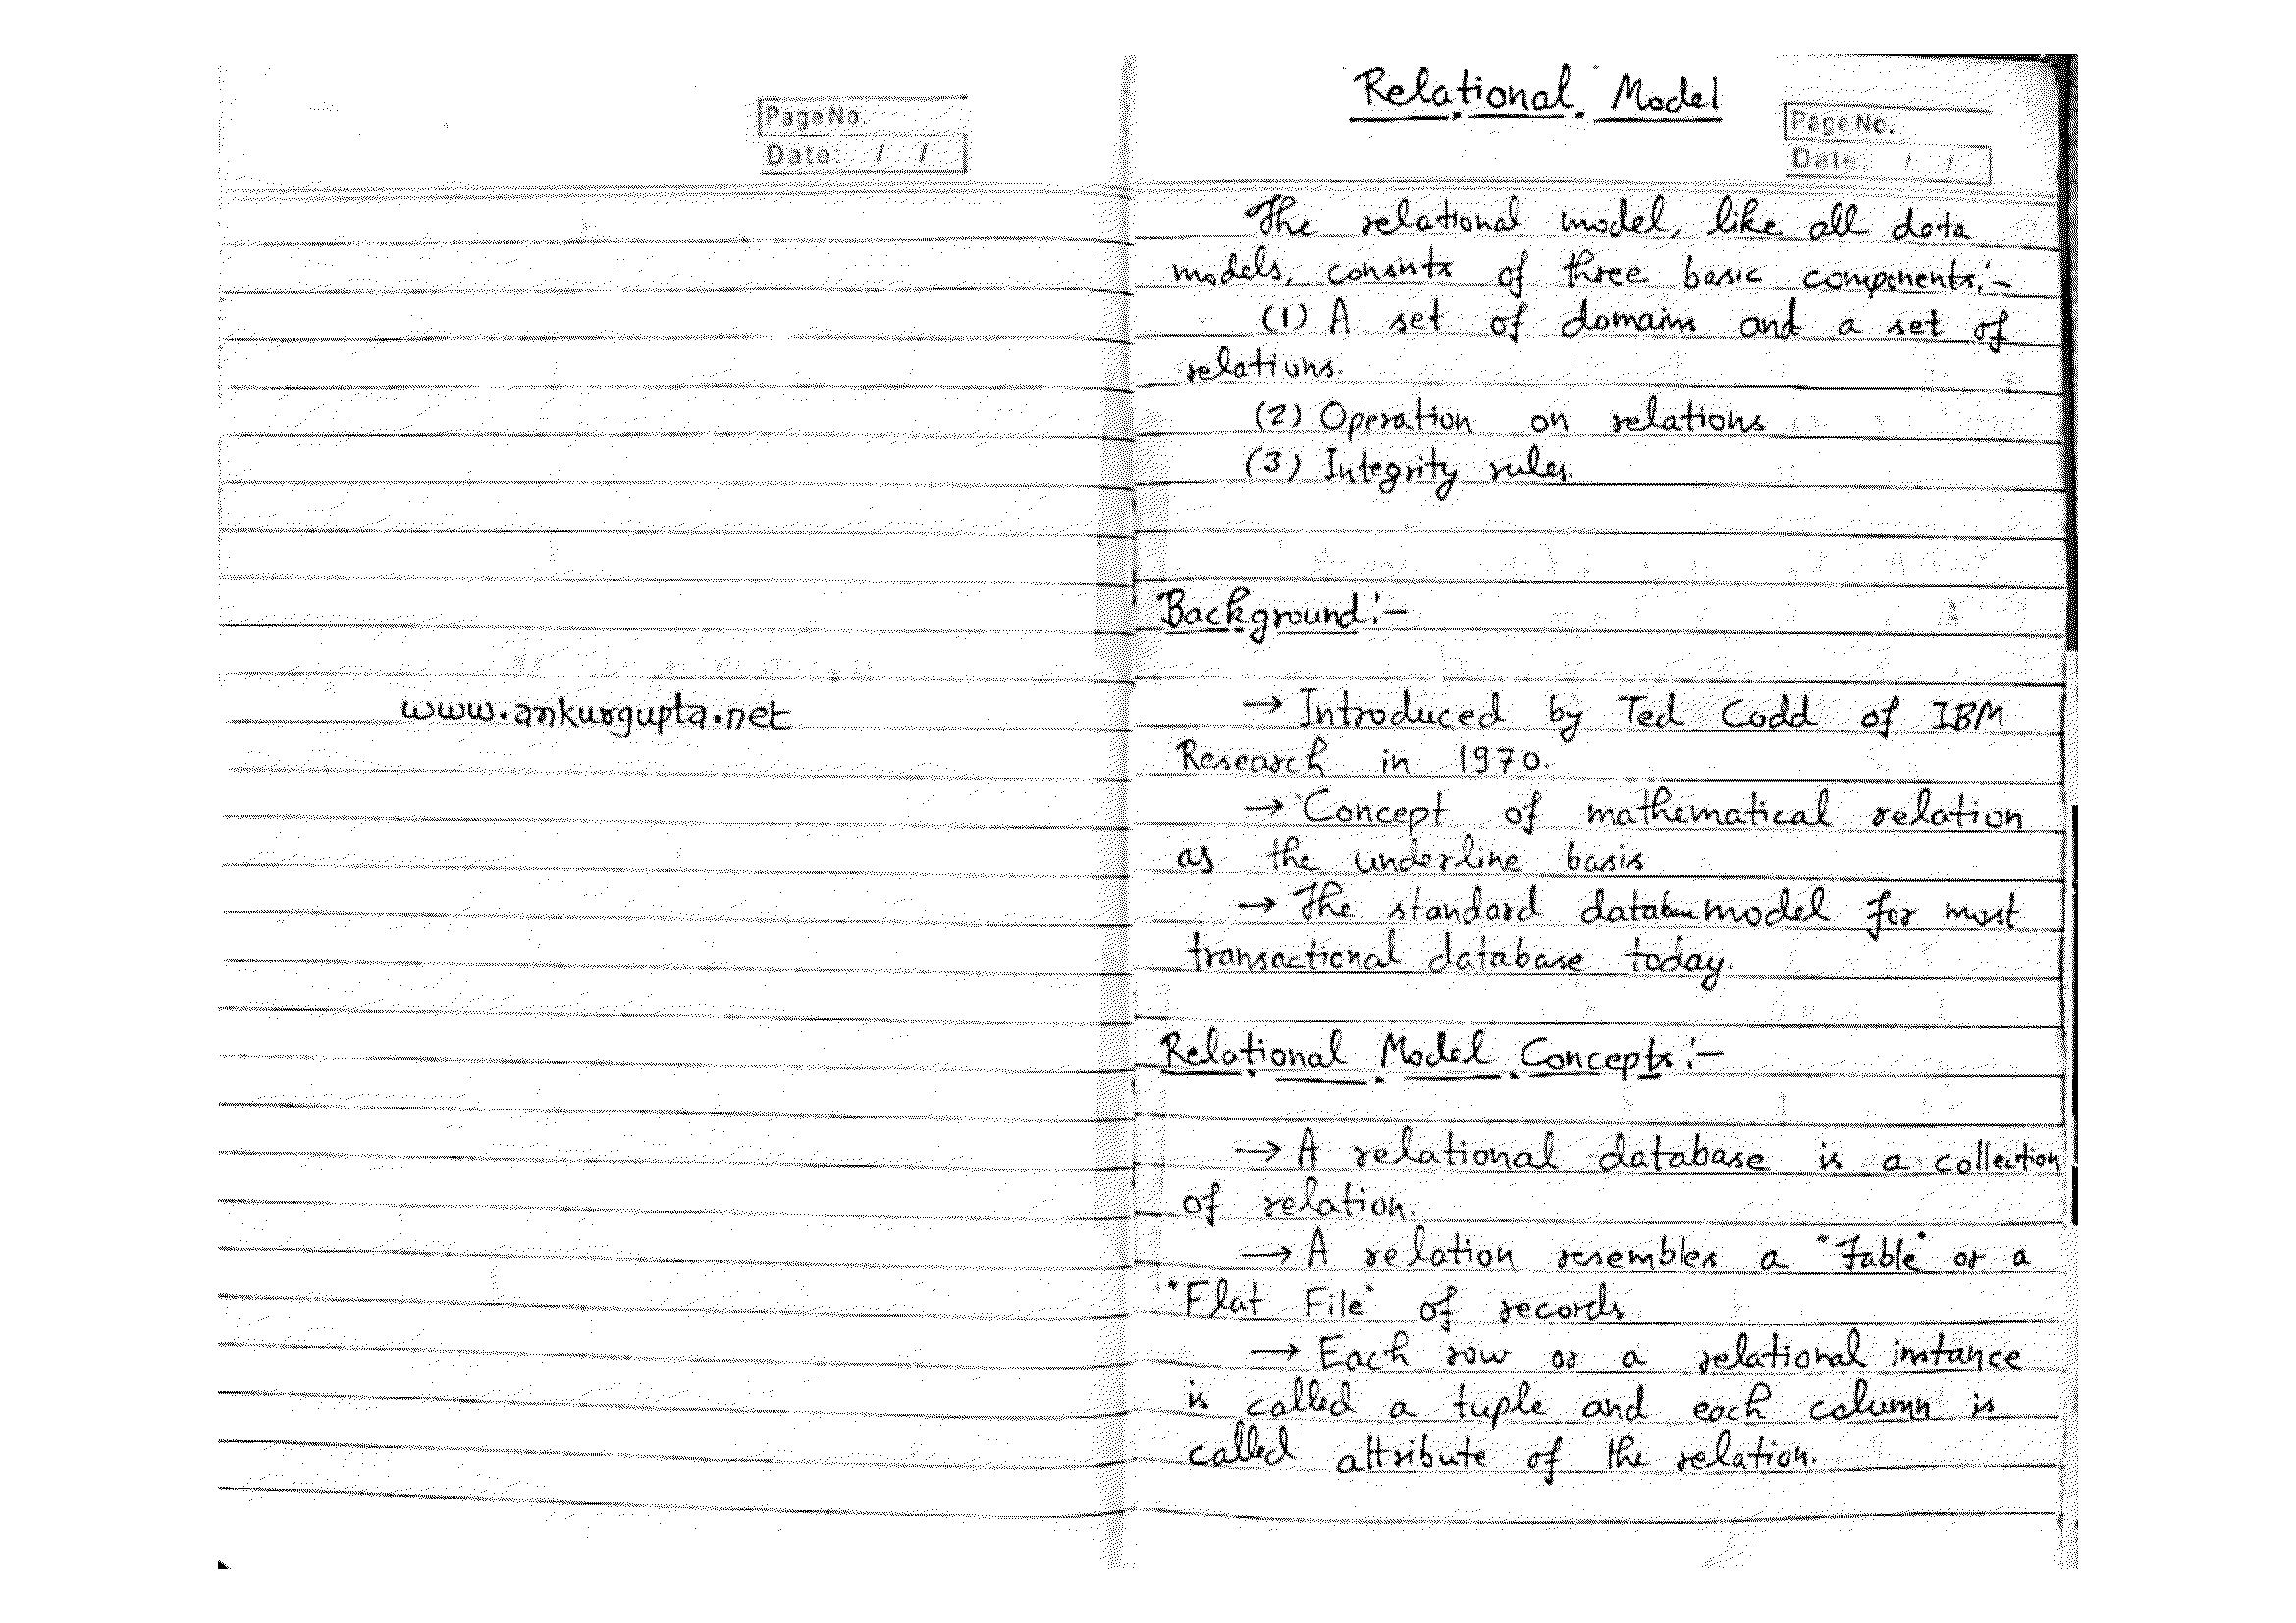 Page No.
Date: / /
www.ankurgupta.net
Relational Model
Page No.
Date / /
The relational model, like all data
models, consists of three basic components:-
(1) A set of domains and a set of
relations.
(2) Operation on relations
(3) Integrity rules.
Background:-
→ Introduced by Ted Codd of IBM
Research in 1970.
→ Concept of mathematical relation
as the underline basis
→ The standard database model for most
transactional database today.
Relational Model Concepts:-
→ A relational database is a collection
of relation.
→ A relation resembles a "Table" or a
"Flat File" of records
→ Each row or a relational instance
is called a tuple and each column is
called attribute of the relation.